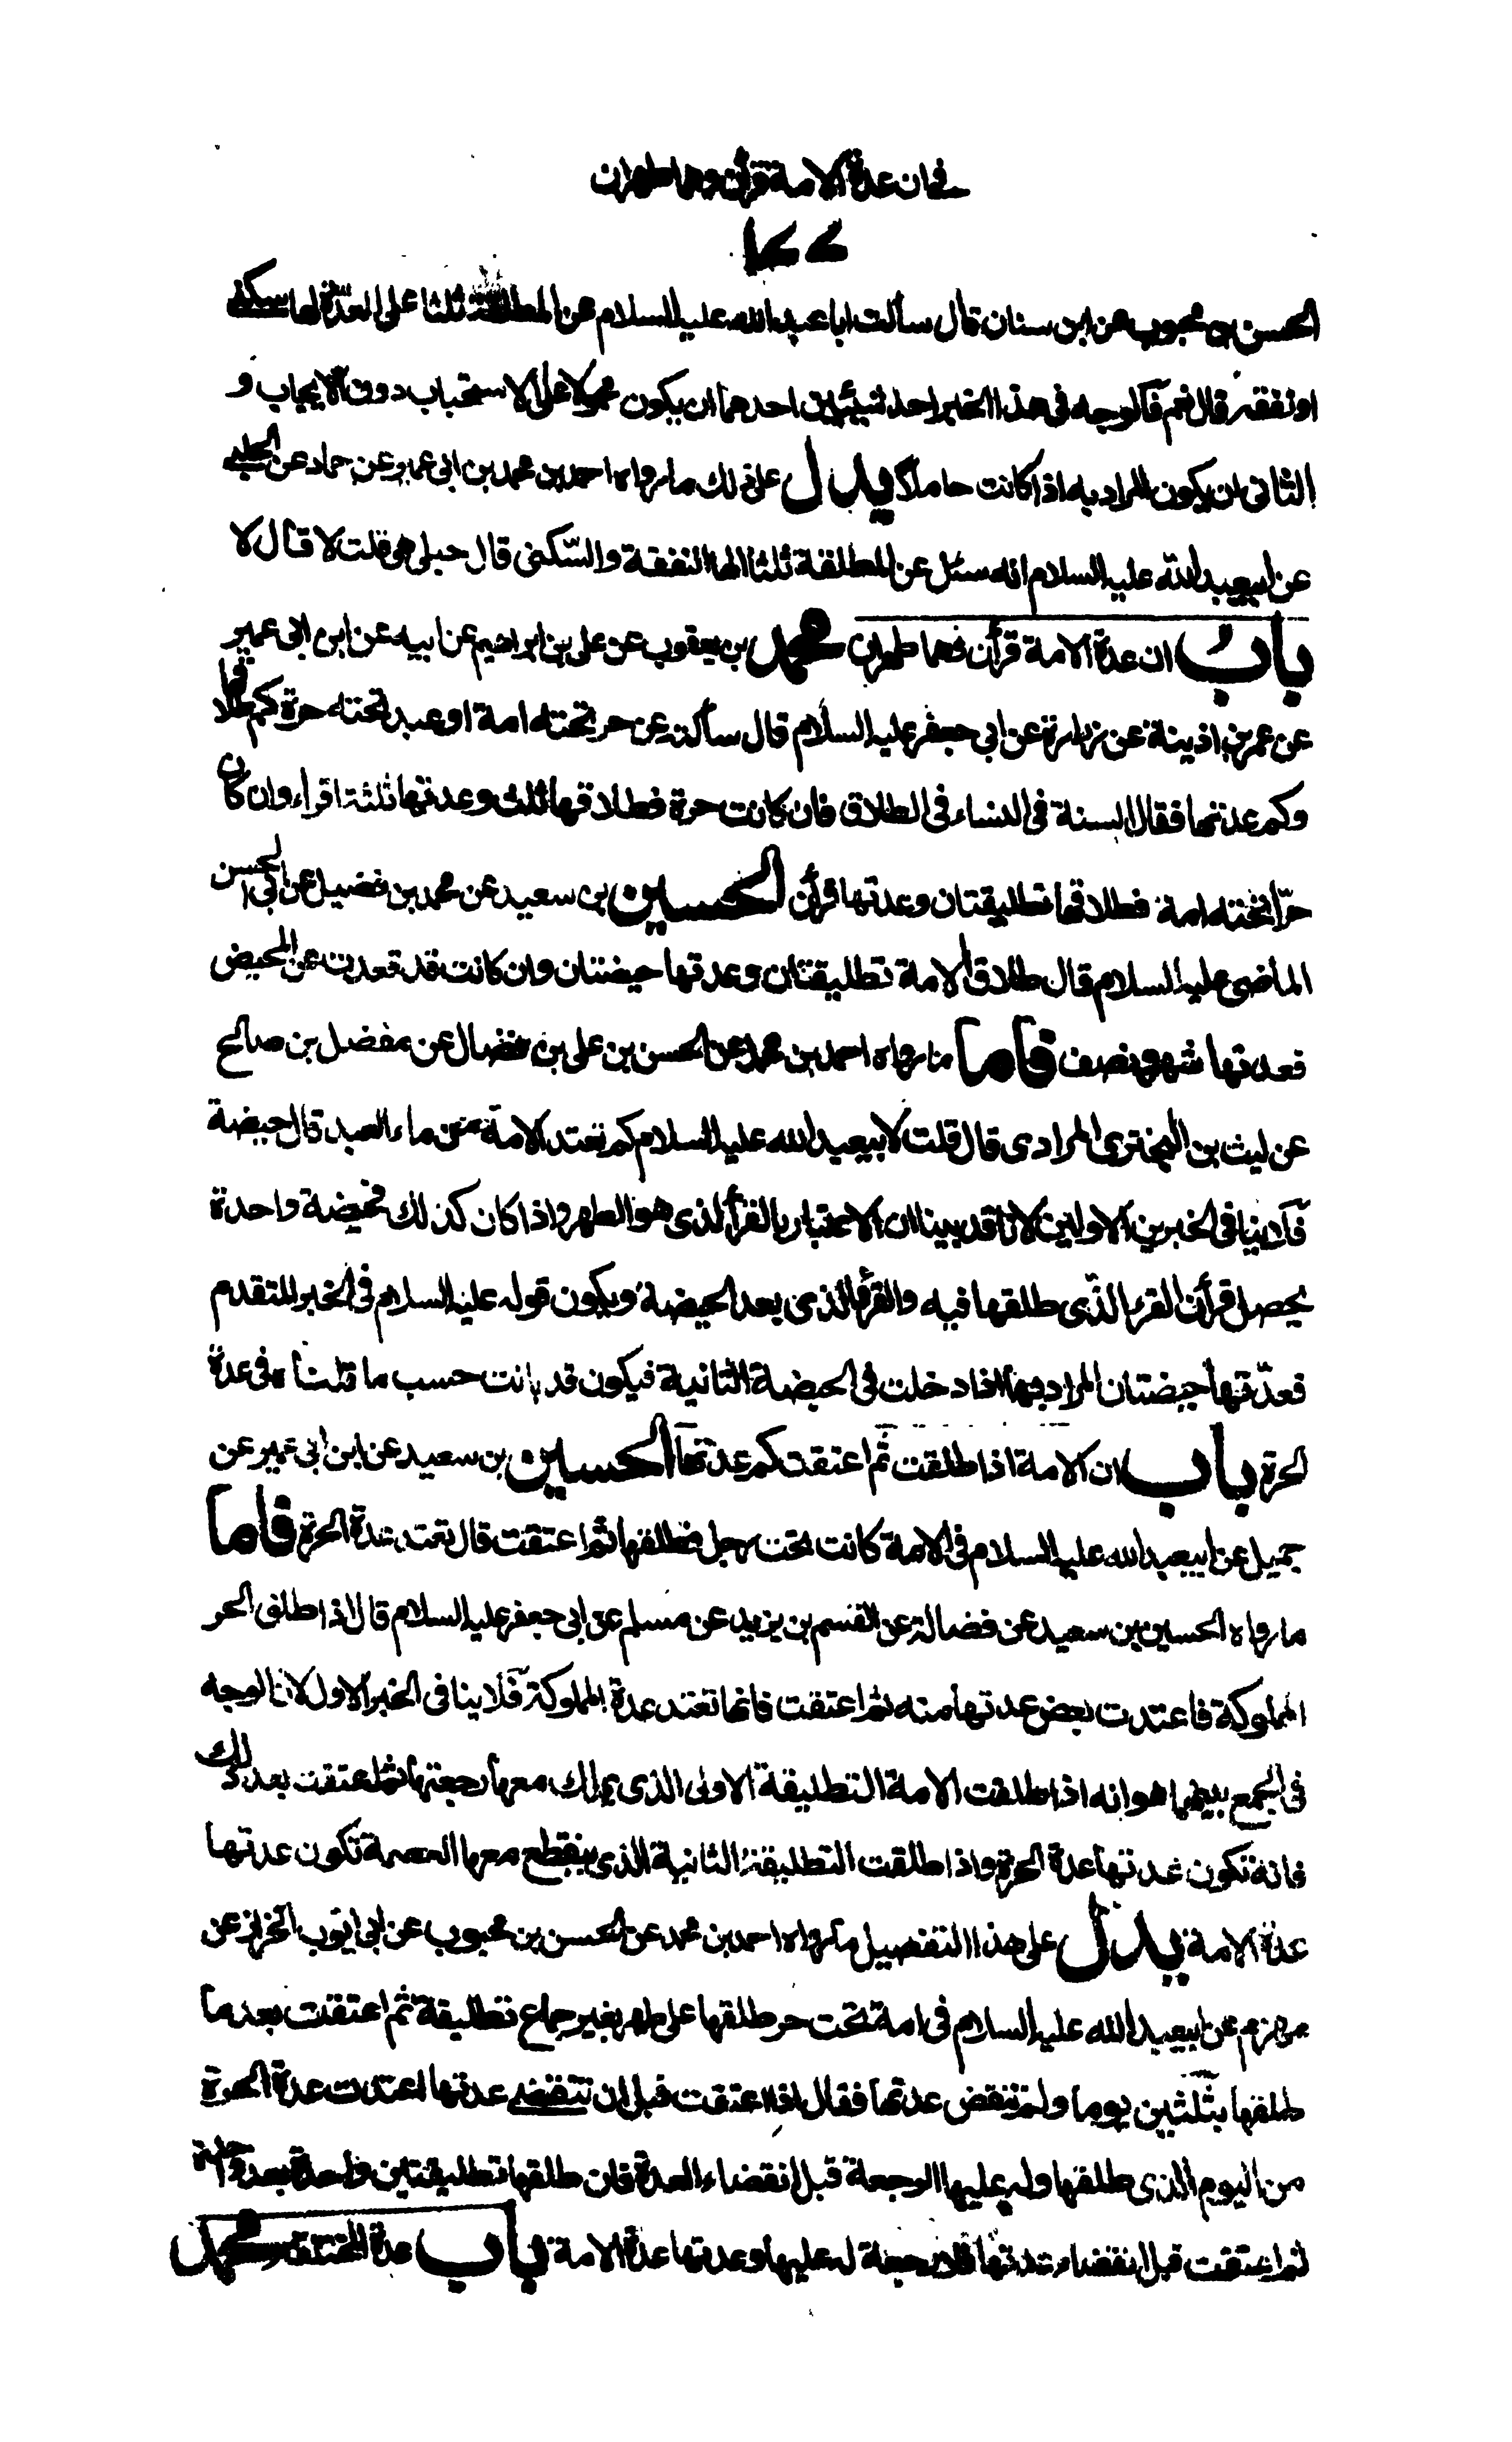 في ان عدة الامة قرأن وهما طهران
الحسن بن محبوب عن ابن سنان قال سألت ابا عبد الله عليه السلام عن المطلقة ثلثا على العدة لها سكنى
او نفقة قال نعم فالوجه في هذا الخبر احد شيئين احدهما ان يكون محمولا على الاستحباب دون الايجاب و
الثاني ان يكون المراد به اذا كانت حاملا يدل على ذلك ما رواه احمد بن محمد بن ابي عمير عن حماد عن الحلبي
عن ابيعبد الله عليه السلام انه سئل عن المطلقة ثلثا الها النفقة والسّكنى قال حبلى هي قلت لا قال لا
باب ان عدة الامة قرأن فهما طهران محمد بن يعقوب عن علي بن ابراهيم عن ابيه عن ابن ابي عمير
عن عمر بن اذينة عن زرارة عن ابي جعفر عليه السلام قال سألته عن حر تحته امة او عبد تحته حرة كم طلاقها
وكم عدتها فقال السنة في النساء في الطلاق فان كانت حرة فطلاقها ثلث وعدتها ثلثة اقراء وان كان
حرّا تحته امة فطلاقها تطليقتان وعدتها قرأن الحسين بن سعيد عن محمد بن فضيل عن ابي الحسن
الماضي عليه السلام قال طلاق الامة تطليقتان وعدتها حيضتان وان كانت قد قعدت عن المحيض
فعدتها شهر ونصف فاما ما رواه احمد بن محمد عن الحسن بن علي بن فضال عن مفضل بن صالح
عن ليث بن البختري المرادي قال قلت لابيعبد الله عليه السلام كم تعتد الامة من ماء العبد قال حيضة
فلا ينافي الخبرين الاولين لانا قد بينا ان الاعتبار بالقرأ لذي هو الطهر واذا كان كذلك فحيضة واحدة
يحصل قرأن القرء الذّي طلقها فيه والقرء الذي بعد الحيضة ويكون قوله عليه السلام في الخبر المتقدم
فعدّتها حيضتان المراد بها اذا دخلت في الحيضة الثانية فيكون قد بانت حسب ما قلناه في عدة
الحرة باب ان الامة اذا طلقت ثم اعتقت كم عدتها الحسين بن سعيد عن ابن ابي عمير عن
جميل عن ابيعبد الله عليه السلام في الامة كانت تحت رجل فطلقها ثم اعتقت قال تعتد عدة الحرة فاما
ما رواه الحسين بن سعيد عن فضالة عن القسم بن يزيد عن مسلم عن ابي جعفر عليه السلام قال اذا طلق الحر
المملوكة فاعتدت بعض عدتها منه ثم اعتقت فانها تعتد عدة المملوكة فلا ينافي الخبر الاول لان الوجه
في الجمع بينهما هو انه اذا طلقت الامة التطليقة الاولى الذي يملك معها رجعتها ثم اعتقت بعد ذلك
فانه تكون عدتها عدة الحرة واذا طلقت التطليقة الثانية الذي ينقطع معها العصمة تكون عدتها
عدة الامة يدل على هذا التفصيل ما رواه احمد بن محمد عن الحسن بن محبوب عن ابي ايوب الخزاز عن
مهزم عن ابيعبد الله عليه السلام في امة تحت حر طلقها على طهر بغير جماع تطليقة ثم اعتقت بعد ما
طلقها بثلثين يوما ولم تنقض عدتها فقال اذا اعتقت قبل ان تنقضي عدتها اعتدت عدة الحرة
من اليوم الذي طلقها وله عليها الرجعة قبل انقضاء العدة فان طلقها تطليقتين واحدة بعد واحدة
ثم اعتقت قبل انقضاء عدتها فلا رجعة له عليها وعدتها عدة الامة باب عدة المختلعة محمد